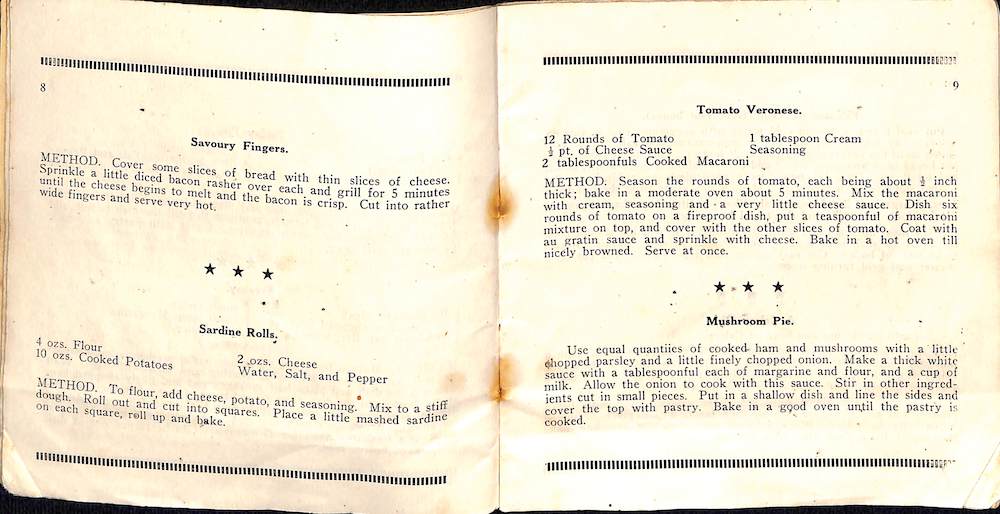 8
Savoury Fingers.
METHOD. Cover some slices of bread with thin slices of cheese.
Sprinkle a little diced bacon rasher over each and grill for 5 minutes
until the cheese begins to melt and the bacon is crisp. Cut into rather
wide fingers and serve very hot.
Sardine Rolls.
4 ozs. Flour
10 ozs. Cooked Potatoes
2 ozs. Cheese
Water, Salt, and Pepper
METHOD. To flour, add cheese, potato, and seasoning. Mix to a stiff
dough. Roll out and cut into squares. Place a little mashed sardine
on each square, roll up and bake.
9
Tomato Veronese.
12 Rounds of Tomato
½ pt. of Cheese Sauce
2 tablespoonfuls Cooked Macaroni
1 tablespoon Cream
Seasoning
METHOD. Season the rounds of tomato, each being about ½ inch
thick; bake in a moderate oven about 5 minutes. Mix the macaroni
with cream, seasoning and a very little cheese sauce. Dish six
rounds of tomato on a fireproof dish, put a teaspoonful of macaroni
mixture on top, and cover with the other slices of tomato. Coat with
au gratin sauce and sprinkle with cheese. Bake in a hot oven till
nicely browned. Serve at once.
Mushroom Pie.
Use equal quantiies of cooked ham and mushrooms with a little
chopped parsley and a little finely chopped onion. Make a thick white
sauce with a tablespoonful each of margarine and flour, and a cup of
milk. Allow the onion to cook with this sauce. Stir in other ingred-
ients cut in small pieces. Put in a shallow dish and line the sides and
cover the top with pastry. Bake in a good oven until the pastry is
cooked.